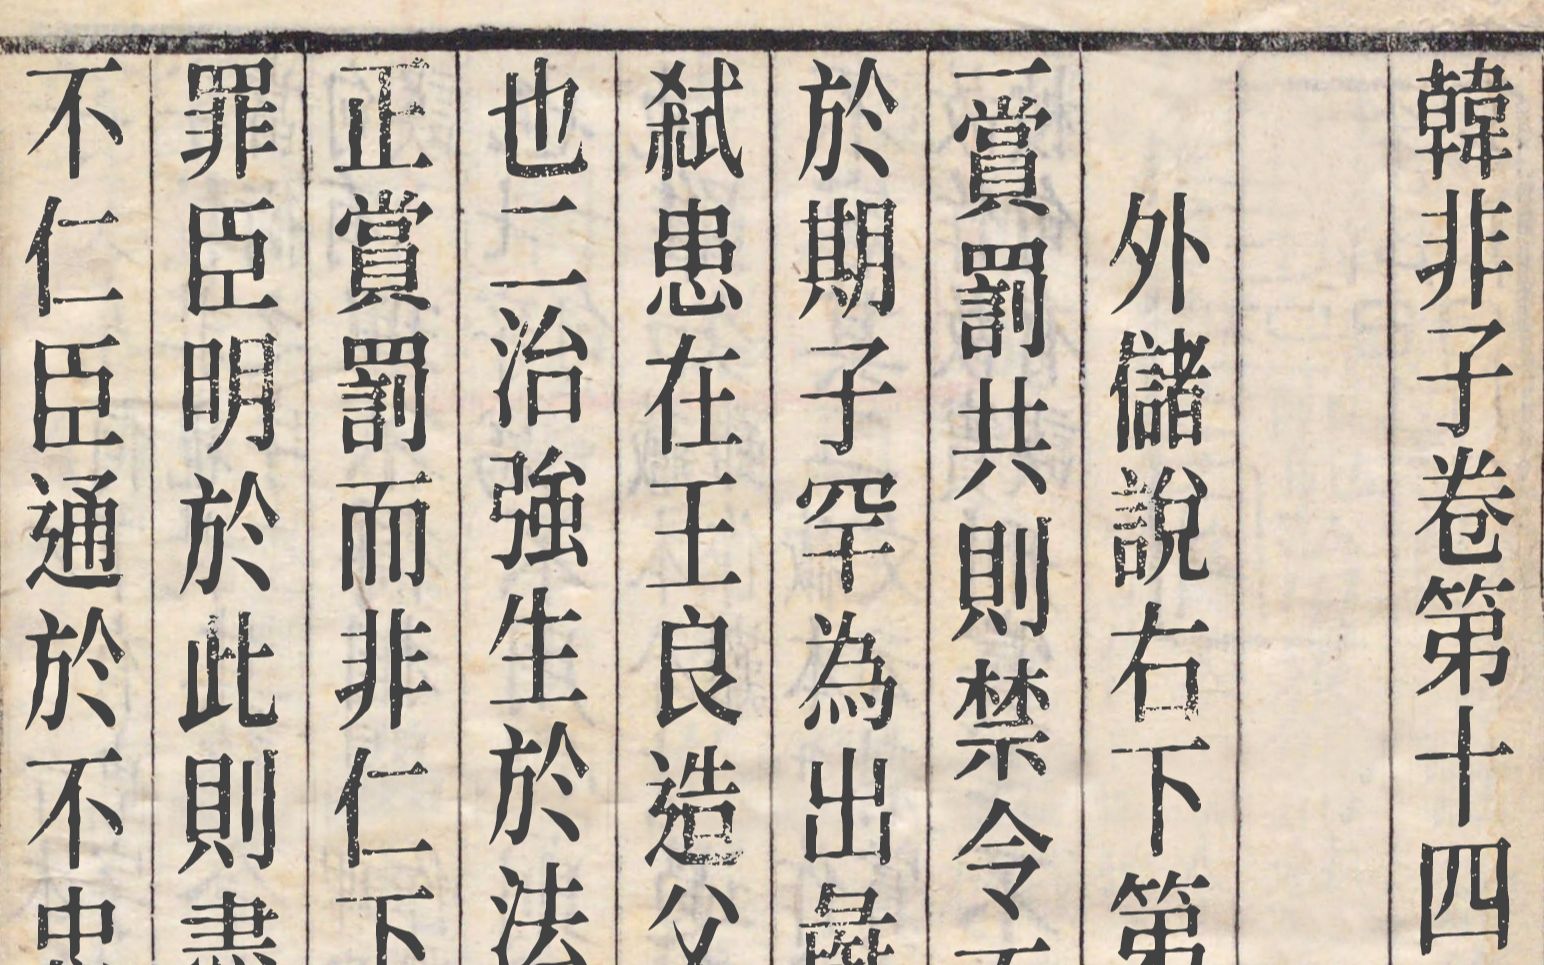 韓非子卷第十四
外儲說右下第
一賞罰共則禁令
於期子罕為出彘
弑患在王良造父
也二治強生於法
正賞罰而非仁下
罪臣明於此則盡
不仁臣通於不忠